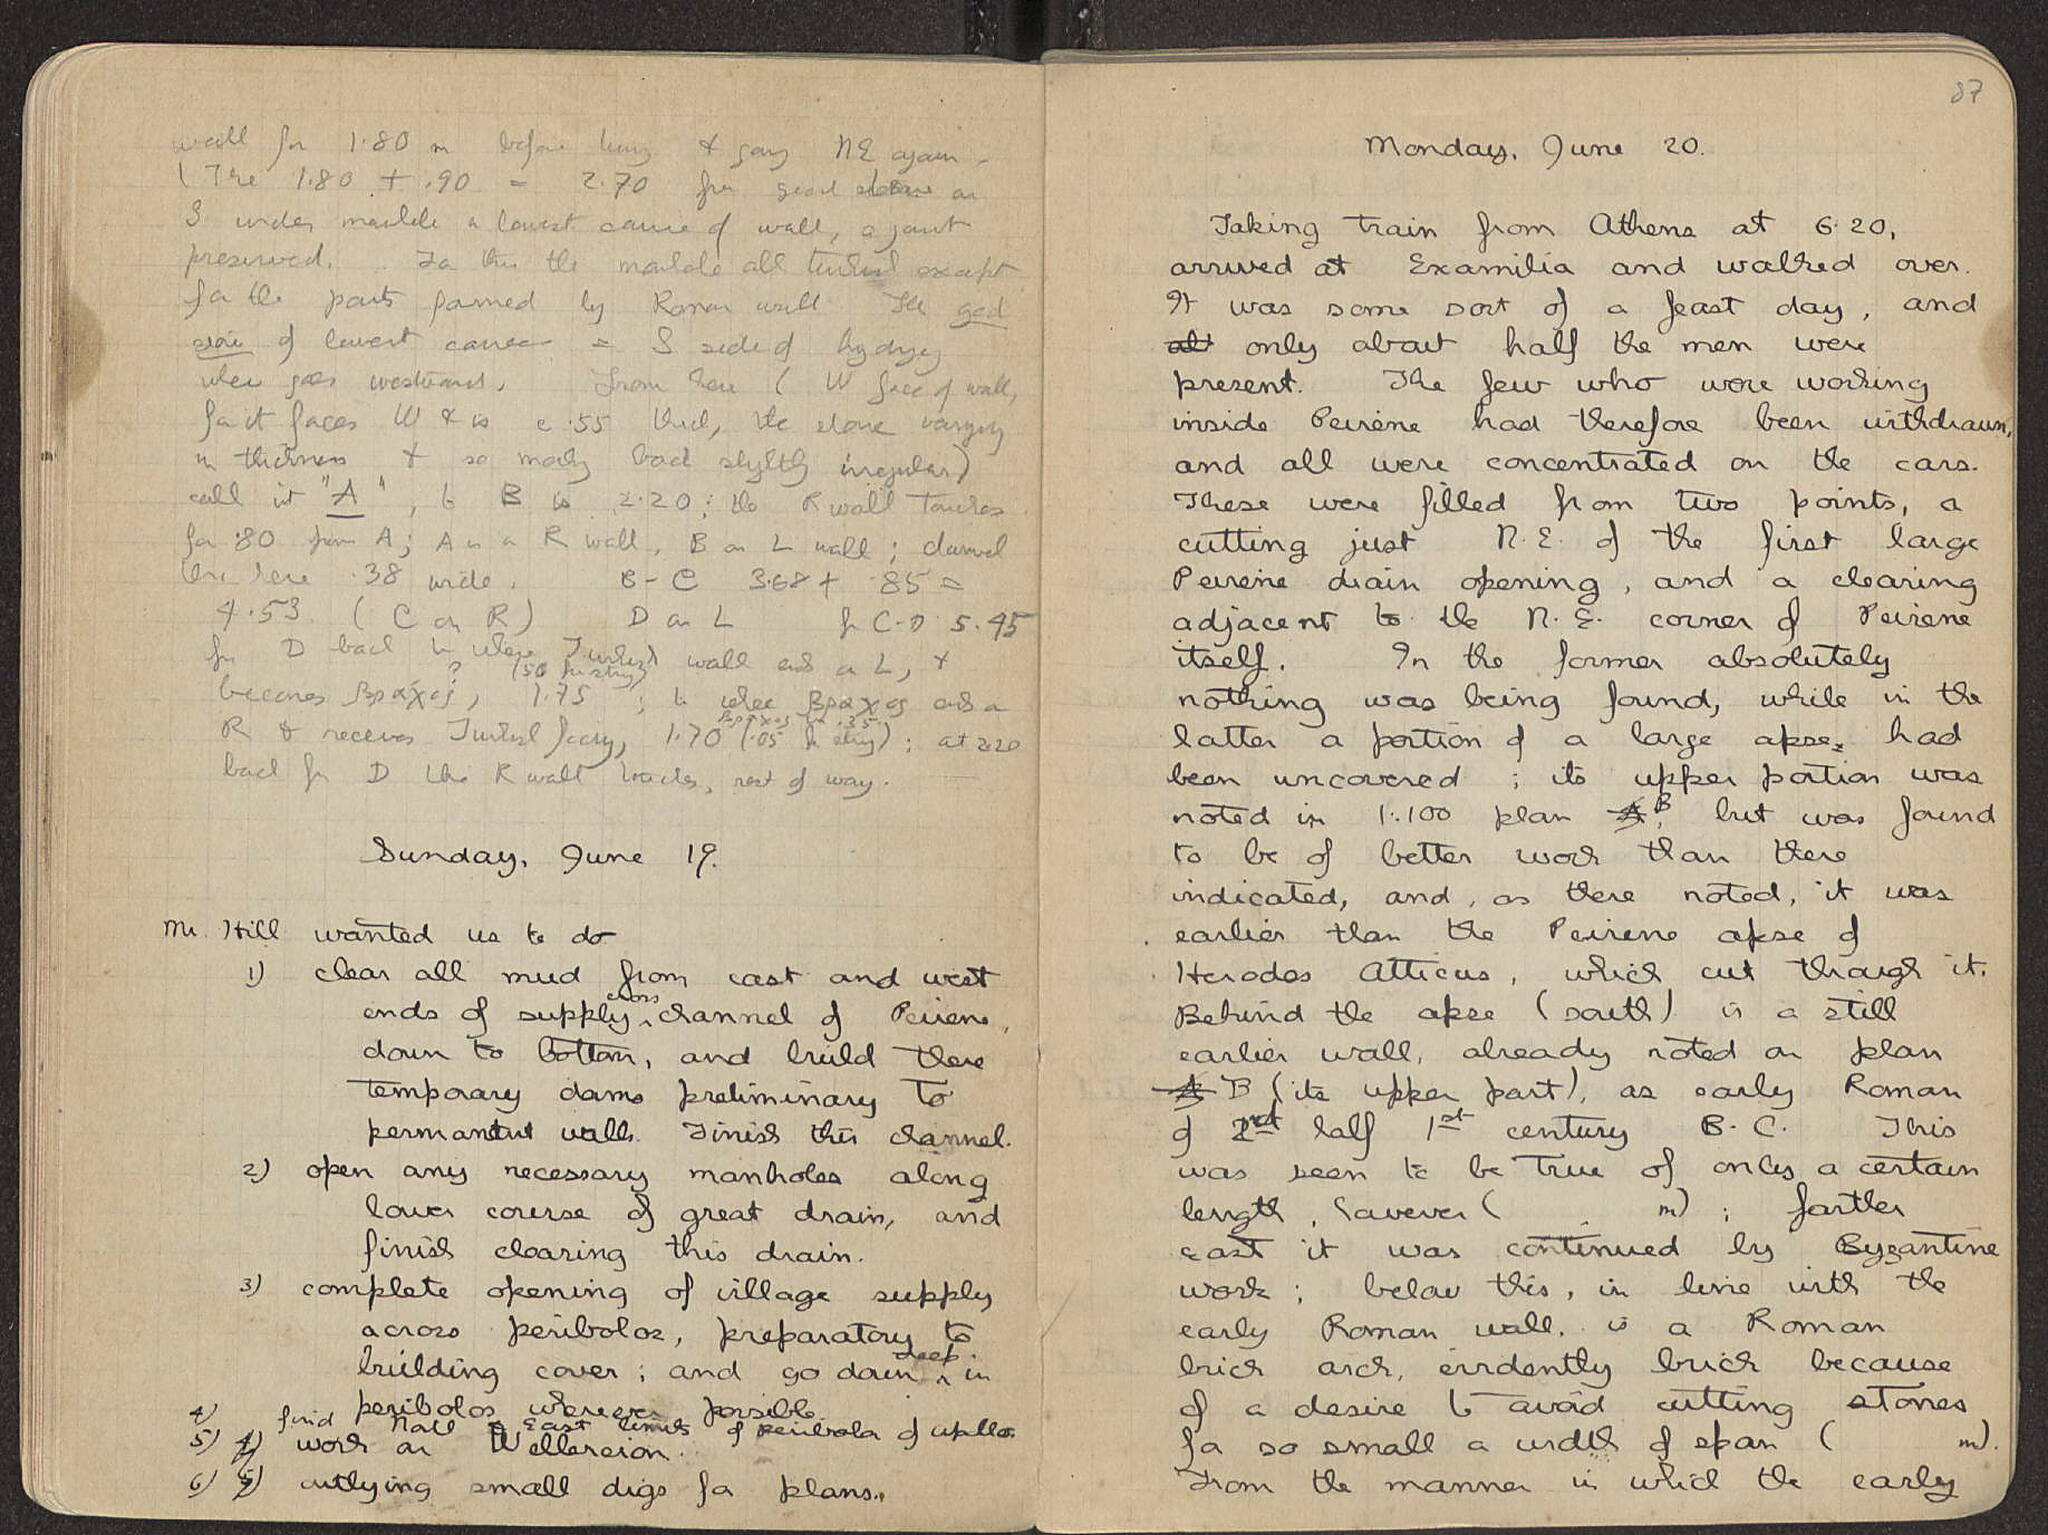 wall for 1.80 m before & going NE again.
(The 1.80 + .90 = 2.70 for good
S under marble a lowest course of wall, a joint
preserved. For this the marble all turkish except
for the parts formed by Roman wall The god
of lowest course = S side of
when goes westward. From here ( W face of wall,
for it faces W & is c .55 thick, the stone varying
in thickness & so making back slightly irregular)
call it "A", to B is 2.20; the R wall Turkish
for .80 from A; A is a R wall, B on L wall; channel
here .38 wide. B-C 3.68 + .85 =
4.53 (C on R) D on L fr C-D 5.45
fr D back to where Turkish wall ends on L, &
becomes βράχος, ? 1.75 (.50 ); to where βράχος ends on
R & receives Turkish facing, 1.70 (.05 ); at 2.20
βράχος .35
back fr D the R wall , rest of way.
Sunday, June 19.
Mr. Hill wanted us to do
1) clear all mud from east and west
ends of supply cross channel of Peirene,
down to bottom, and build there
temporary dams preliminary to
permanent walls. Finish this channel.
2) open any necessary manholes along
lower course of great drain, and
finish clearing this drain.
3) complete opening of village supply
across peribolos, preparatory to
building cover; and go down deep in
peribolos wherever possible.
4) find North & East limits of peribolos of Apollo.
5) 4) work on
6) 5) outlying small digs for plans.
87
Monday, June 20.
Taking train from Athens at 6.20,
arrived at Examilia and walked over.
It was some sort of a feast day, and
only about half the men were
present. The few who were working
inside Peirene had therefore been withdrawn,
and all were concentrated on the cars.
These were filled from two points, a
cutting just N.E. of the first large
Peirene drain opening, and a clearing
adjacent to the N.E. corner of Peirene
itself. In the former absolutely
nothing was being found, while in the
latter a portion of a large apse had
been uncovered; its upper portion was
noted in 1:100 plan A B, but was found
to be of better work than there
indicated, and, as there noted, it was
earlier than the Peirene apse of
Herodes Atticus, which cut through it.
Behind the apse (south) is a still
earlier wall, already noted on plan
A B (its upper part), as early Roman
of 2nd half 1st century B.C. This
was seen to be true of only a certain
length, however ( . m); farther
east it was continued by Byzantine
work; below this, in line with the
early Roman wall, is a Roman
brick arch, evidently brick because
of a desire to avoid cutting stones
for so small a width of span ( m).
From the manner in which the early